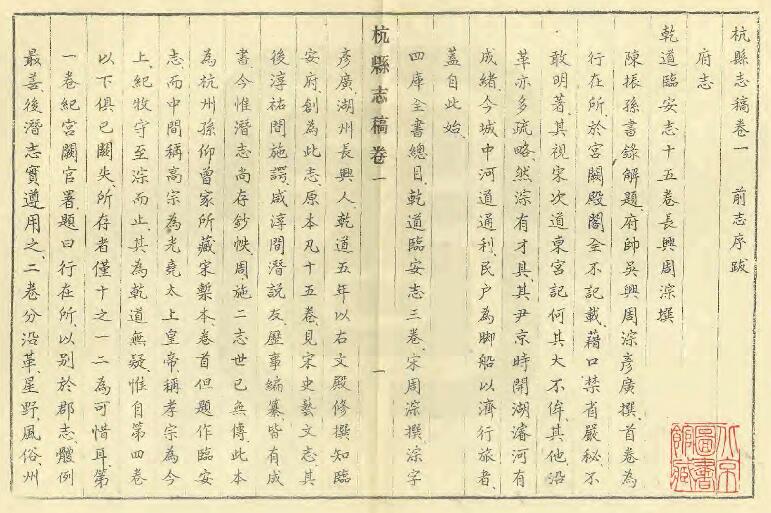 杭縣志稿卷一　前志序跋
府志
乾道臨安志十五卷長興周淙撰
陳振孫書錄解題、府帥吳興周淙彥廣撰、首卷為
行在所、於宮闕殿閣全不記載、藉口禁省嚴秘、不
敢明著、其視宋次道東宮記何其大不侔、其他沿
革亦多疏略、然淙有才具、其尹京時開湖濬河有
成緒、今城中河道通利、民戶為脚船以濟行旅者、
蓋自此始、
四庫全書總目、乾道臨安志三卷、宋周淙撰、淙字
杭縣志稿卷一　一
彥廣、湖州長興人、乾道五年以右文殿修撰知臨
安府、創為此志、原本凡十五卷、見宋史藝文志、其
後淳祐間施諤、咸淳間潛說友、歷事編纂、皆有成
書、今惟潛志尚存鈔帙、周、施二志世已無傳、此本
為杭州孫仰曾家所藏宋槧本、卷首但題作臨安
志、而中間稱高宗為光堯太上皇帝、稱孝宗為今
上、紀牧守至淙而止、其為乾道無疑、惟自第四卷
以下俱已闕失、所存者僅十之一二為可惜耳、第
一卷紀宮闕官署、題曰行在所、以別於郡志、體例
最善、後潛志實遵用之、二卷分沿革、星野、風俗、州
北京圖書館藏